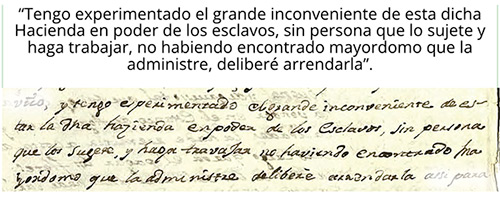 “Tengo experimentado el grande inconveniente de esta dicha
Hacienda en poder de los esclavos, sin persona que lo sujete y
haga trabajar, no habiendo encontrado mayordomo que la
administre, deliberé arrendarla”.
y tengo esperimentado el grande inconveniente de es-
tar la dha hazienda en poder de los Esclavos, sin persona
que los sugete, y haga travajar no haviendo encontrado ma
yordomo que la administre deliberè arrendarla assi para